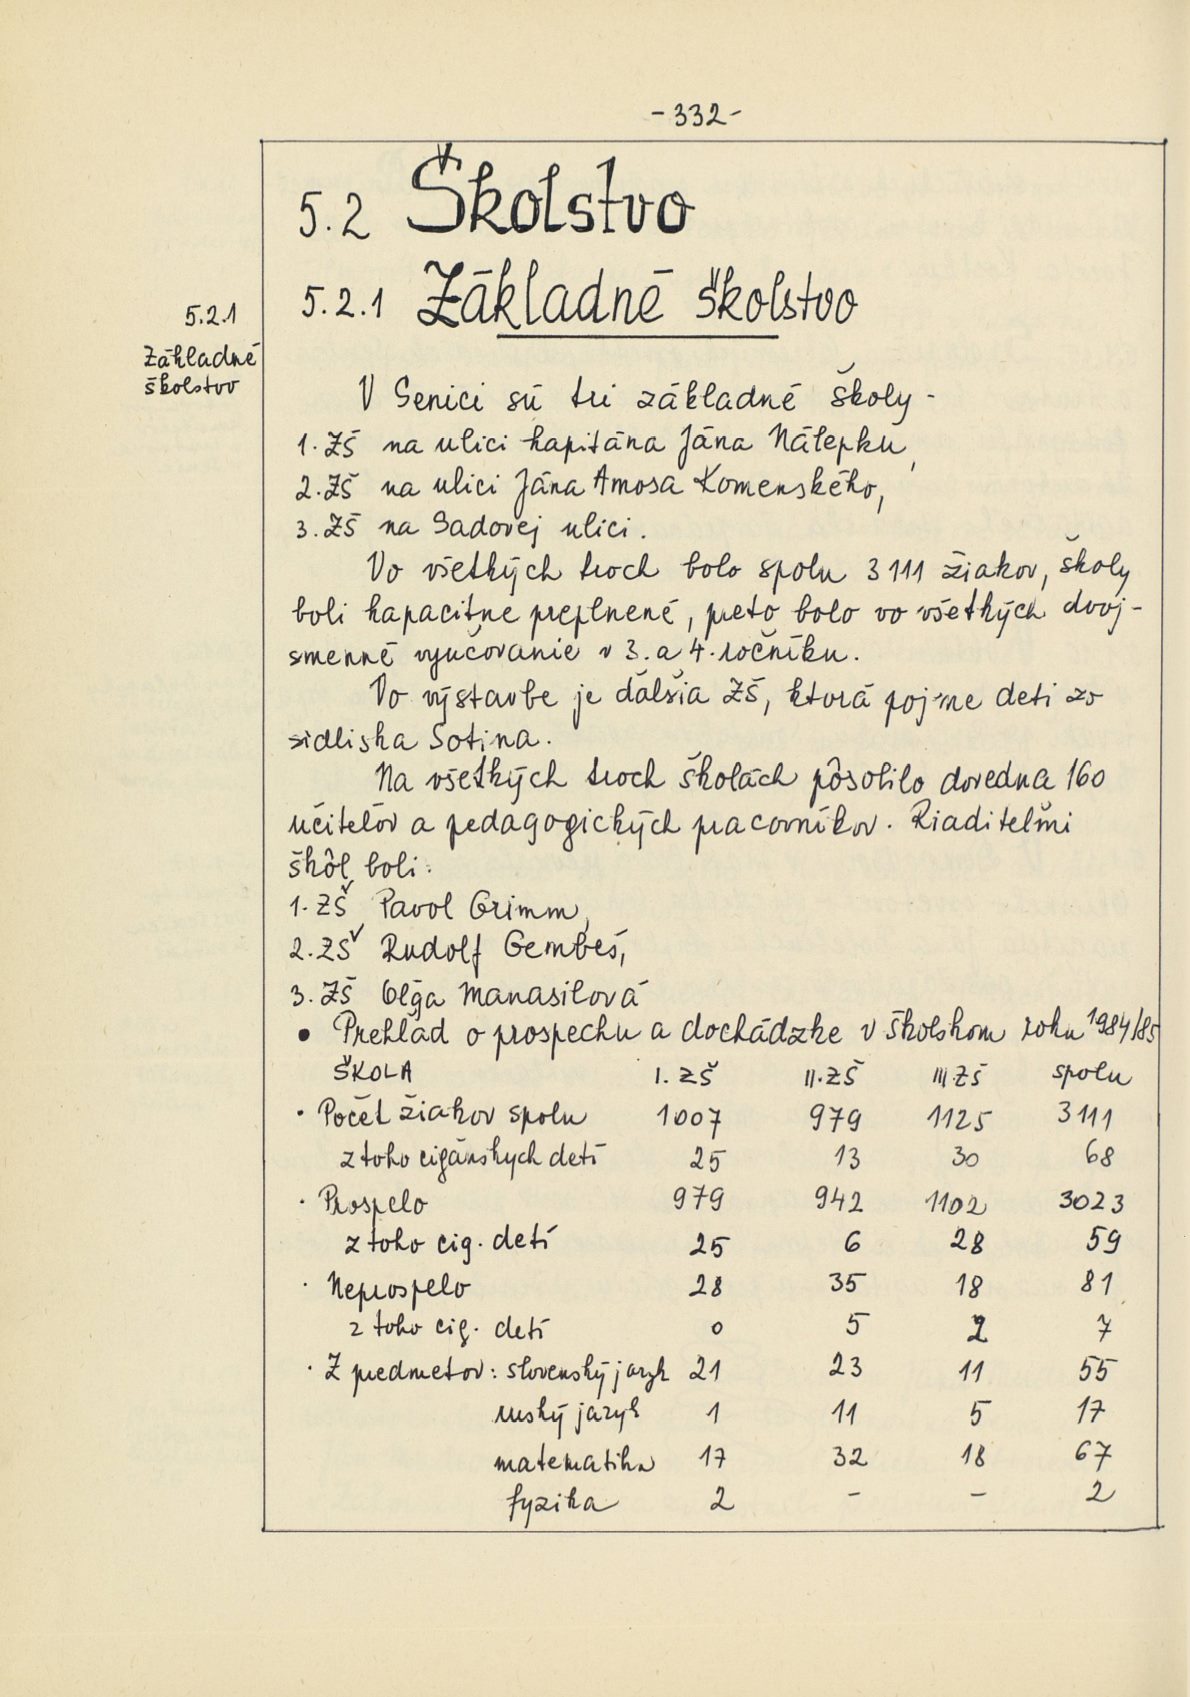 -332-
5.2 Školstvo
5.2.1 Základné školstvo
5.2.1
Základné
školstvo
V Senici sú tri základné školy -
1. ZŠ na ulici kapitána Jána Nálepku,
2. ZŠ na ulici Jána Amosa Komenského,
3. ZŠ na Sadovej ulici.
Vo všetkých troch bolo spolu 3 111 žiakov, školy
boli kapacitne preplnené, preto bolo vo všetkých dvoj-
smenné vyučovanie v 3. a 4. ročníku.
Vo výstavbe je ďalšia ZŠ, ktorá pojme deti zo
sídliska Sotina.
Na všetkých troch školách pôsobilo dovedna 160
učiteľov a pedagogických pracovníkov. Riaditeľmi
škôl boli:
1. ZŠ Pavol Grimm,
2. ZŠ Rudolf Gembeš,
3. ZŠ Oľga Manasilová
• Prehľad o prospechu a dochádzke v školskom roku 1984/85
ŠKOLA I. ZŠ II. ZŠ III. ZŠ spolu
· Počet žiakov spolu 1007 979 1125 3111
z toho cigánskych detí 25 13 30 68
· Prospelo 979 942 1102 3023
z toho cig. detí 25 6 28 59
· Neprospelo 28 35 18 81
z toho cig. detí 0 5 2 7
· Z predmetov: slovenský jazyk 21 23 11 55
ruský jazyk 1 11 5 17
matematika 17 32 18 67
fyzika 2 - - 2